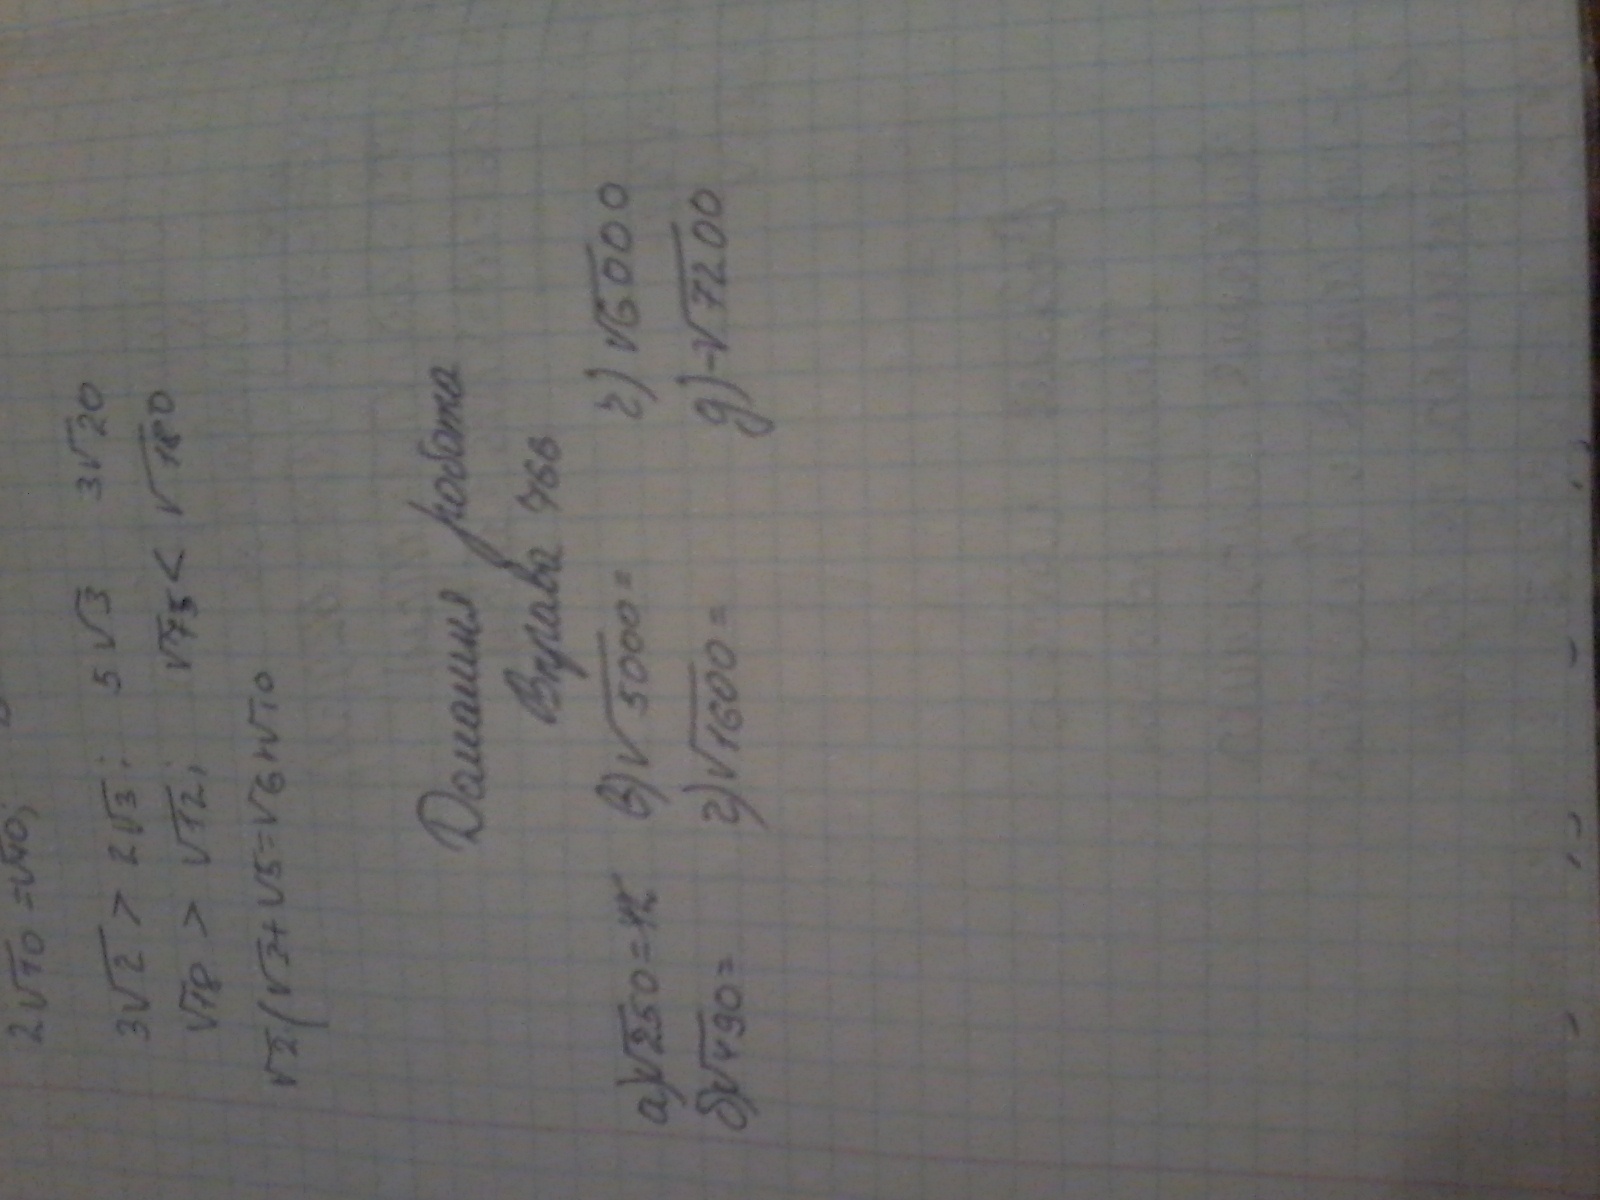 2√10 = √40;
3√2 > 2√3; 5√3 3√20
√18 > √12; √75 < √180
√2(√3+√5=√6+√10
Домашня робота
Вправа 766
а)√250= в)√5000= г)√6000
б)√490= г)√1600= д)-√7200